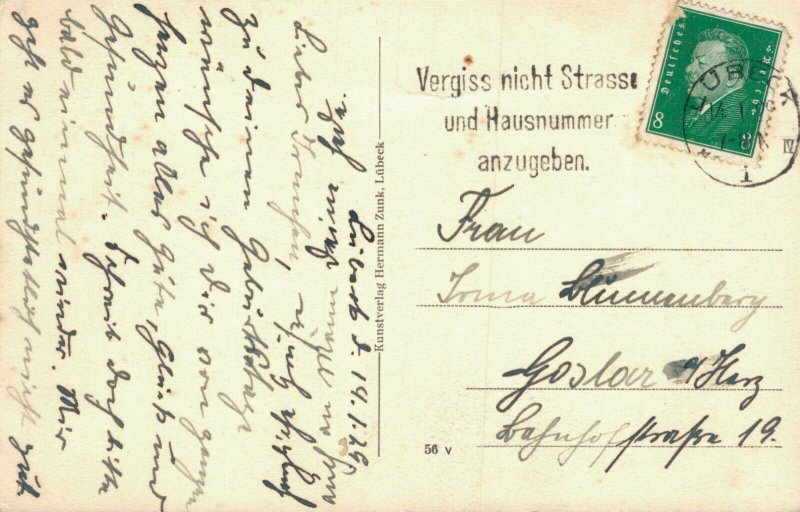 Lübeck d. 14.1.29
Liebes
zu deinem Geburtstage
wünsche ich dir von ganzem
Herzen alles Gute, Glück und
Gesundheit. Schreib doch bitte
bald einmal wieder. Mir
geht es gesundheitlich nicht gut
auch Mann
Kunstverlag Hermann Zunk, Lübeck
56 v
Vergiss nicht Strasse
und Hausnummer
anzugeben.
Deutsches Reich
8 8
LÜBECK
Frau
Irma Blumenberg
Goslar a/Harz
Bahnhofstraße 19.